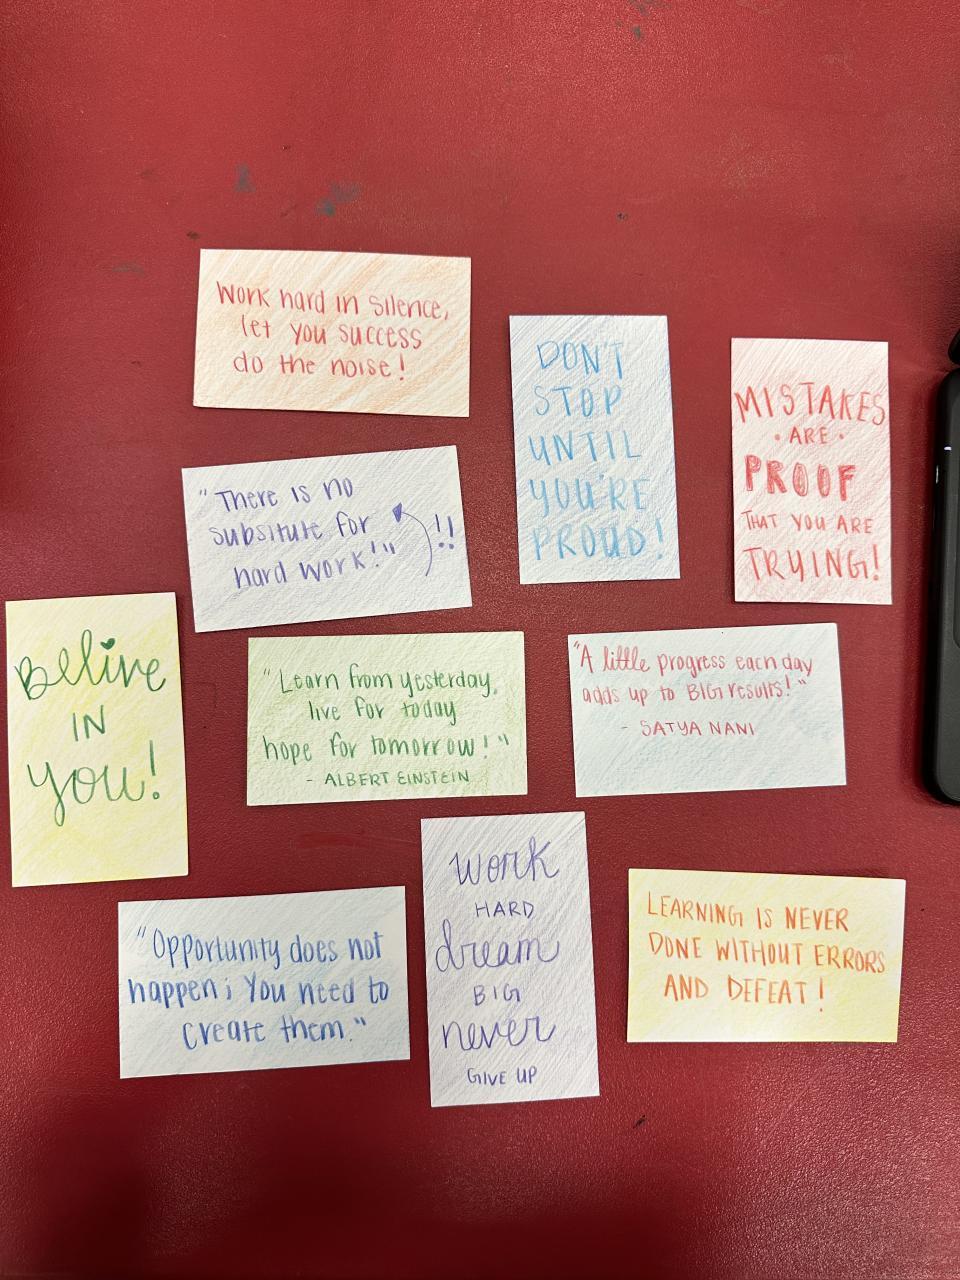 Work hard in silence,
let you success
do the noise!
DON'T
STOP
UNTIL
YOU'RE
PROUD!
MISTAKES
• ARE •
PROOF
THAT YOU ARE
TRYING!
"There is no
subsitute for
hard work!" !!
Belive
IN
you!
"Learn from yesterday,
live for today
hope for tomorrow!"
- ALBERT EINSTEIN
"A little progress each day
adds up to BIG results!"
- SATYA NANI
"Opportunity does not
happen; You need to
create them."
work
HARD
dream
BIG
never
GIVE UP
LEARNING IS NEVER
DONE WITHOUT ERRORS
AND DEFEAT!